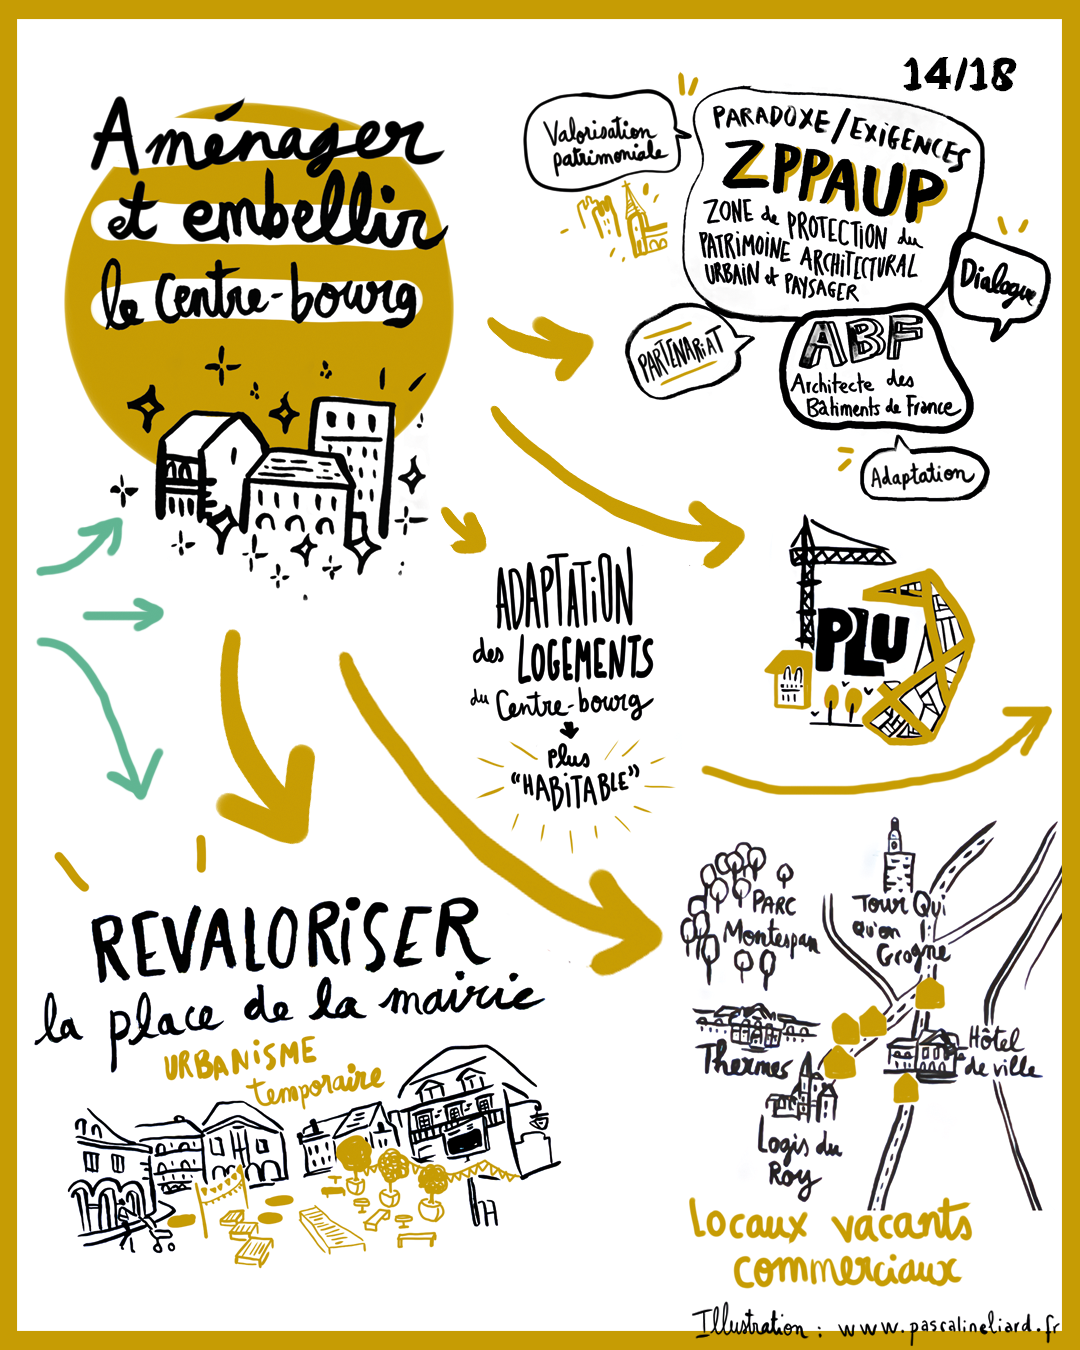 14/18
Aménager
et embellir
le Centre-bourg
Valorisation
patrimoniale
PARADOXE/EXIGENCES
ZPPAUP
ZONE de PROTECTION du
PATRIMOINE ARCHITECTURAL
URBAIN et PAYSAGER
Dialogue
PARTENARIAT
ABF
Architecte des
Bâtiments de France
Adaptation
ADAPTATION
des LOGEMENTS
du Centre-bourg
plus
"HABITABLE"
PLU
REVALORISER
la place de la mairie
URBANISME
temporaire
PARC
Montespan
Tour Qui
qu'en
Grogne
Thermes
Hôtel
de ville
Logis du
Roy
Locaux vacants
commerciaux
Illustration : www.pascalineliard.fr